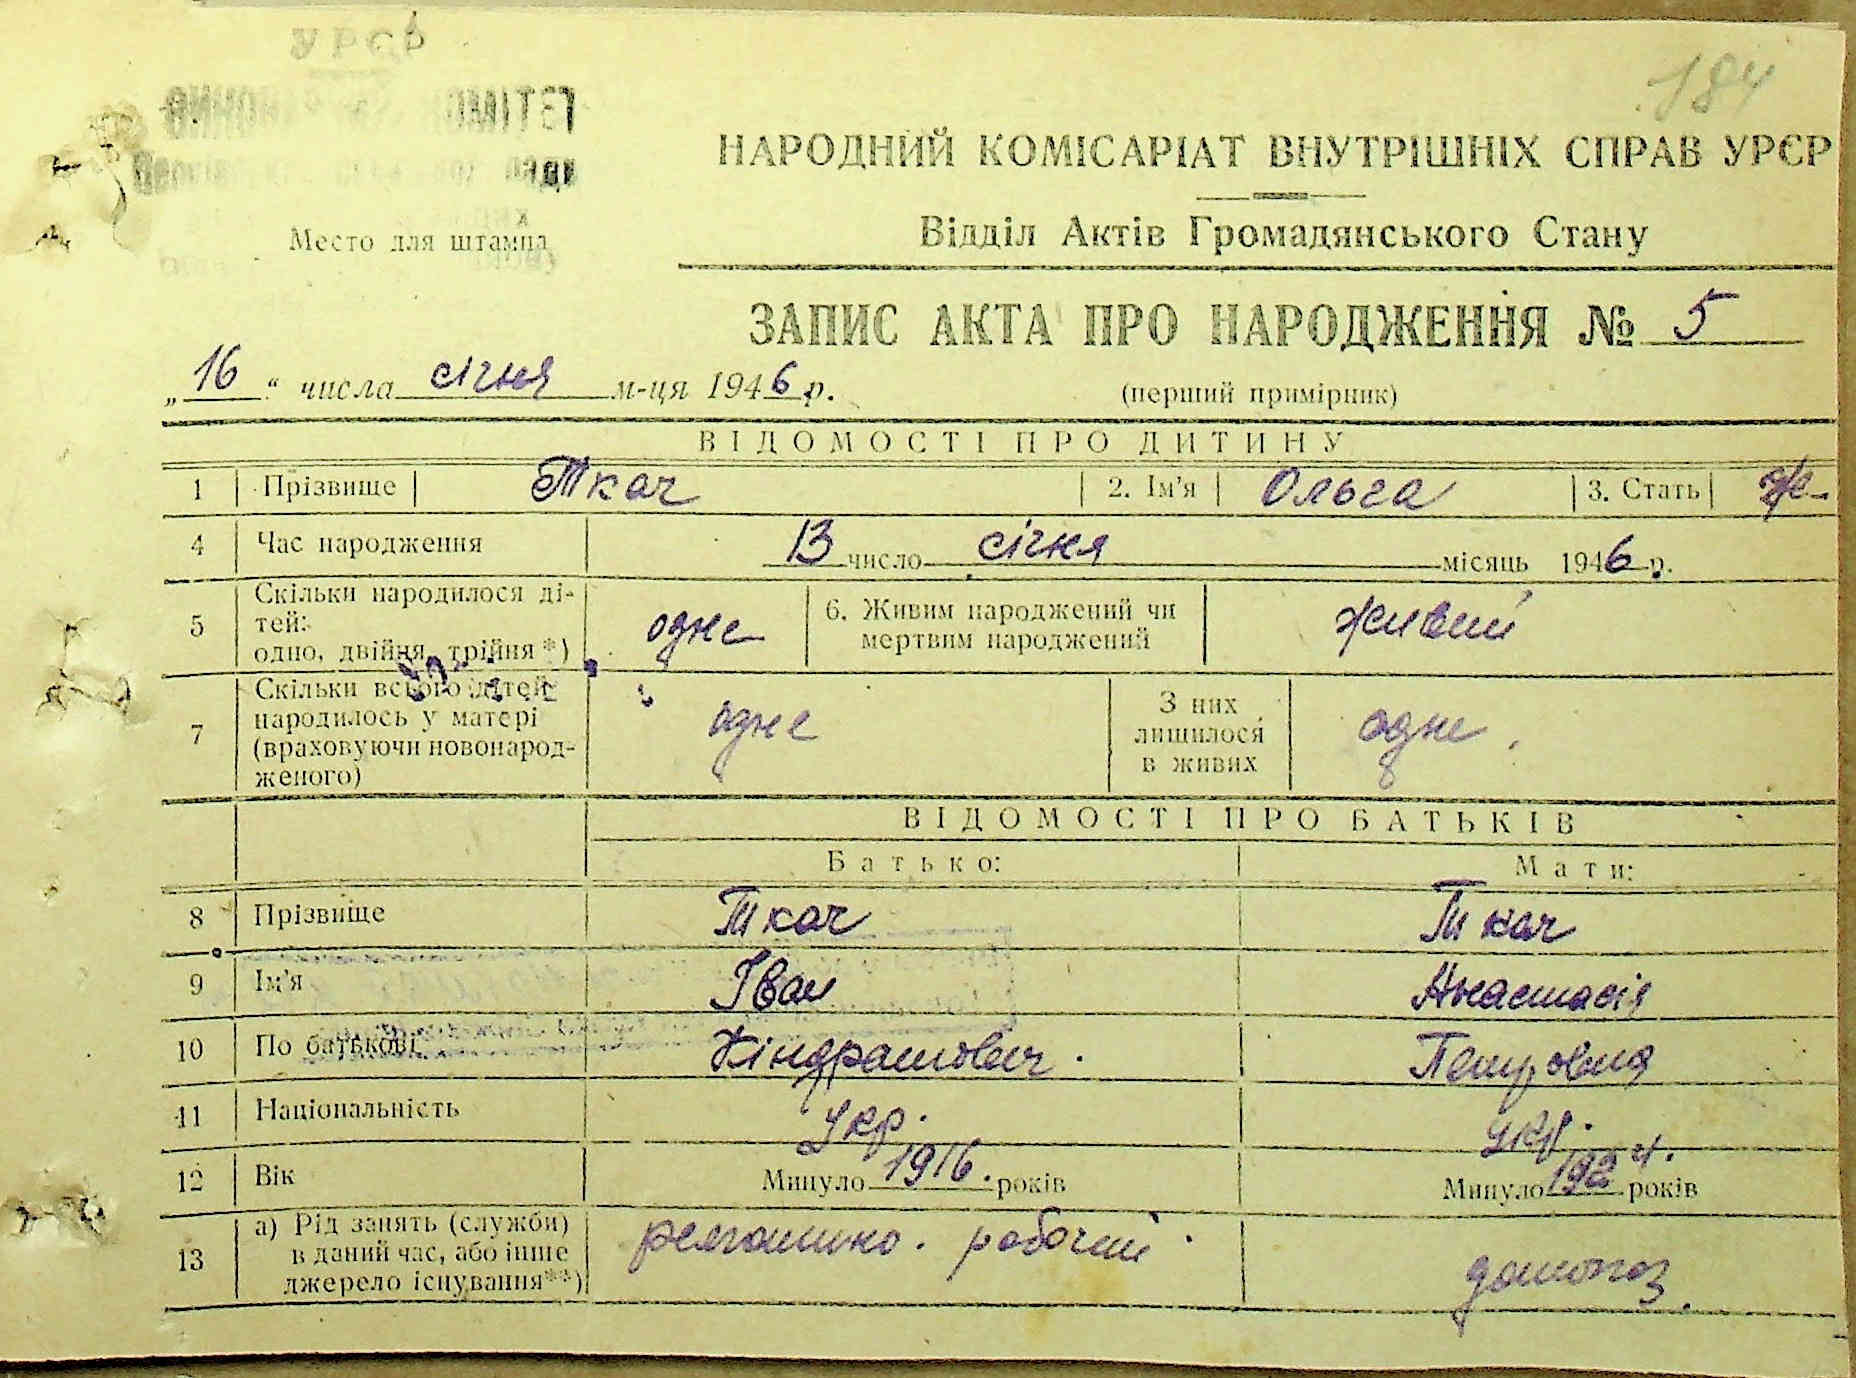 УРСР
184
НАРОДНИЙ КОМІСАРІАТ ВНУТРІШНІХ СПРАВ УРСР
Место для штампа
Відділ Актів Громадянського Стану
ЗАПИС АКТА ПРО НАРОДЖЕННЯ № 5
„16“ числа січня м-ця 1946 р.
(перший примірник)
ВІДОМОСТІ ПРО ДИТИНУ
1 Прізвище Ткач 2. Ім'я Ольга 3. Стать ж.
4 Час народження 13 число січня місяць 1946 р.
5 Скільки народилося ді-
тей:
одно, двійня, трійня *)
одне
6. Живим народжений чи
мертвим народжений
живий
7 Скільки всього дітей
народилось у матері
(враховуючи новонарод-
женого)
одне
З них
лишилося
в живих
одне.
ВІДОМОСТІ ПРО БАТЬКІВ
Батько: Мати:
8 Прізвище Ткач Ткач
9 Ім'я Іван Анастасія
10 По батькові Кіндратович. Петровна
11 Національність укр. укр.
12 Вік Минуло 1916. років Минуло 1924. років
13 а) Рід занять (служби)
в даний час, або інше
джерело існування**)
робочий
домогоз.